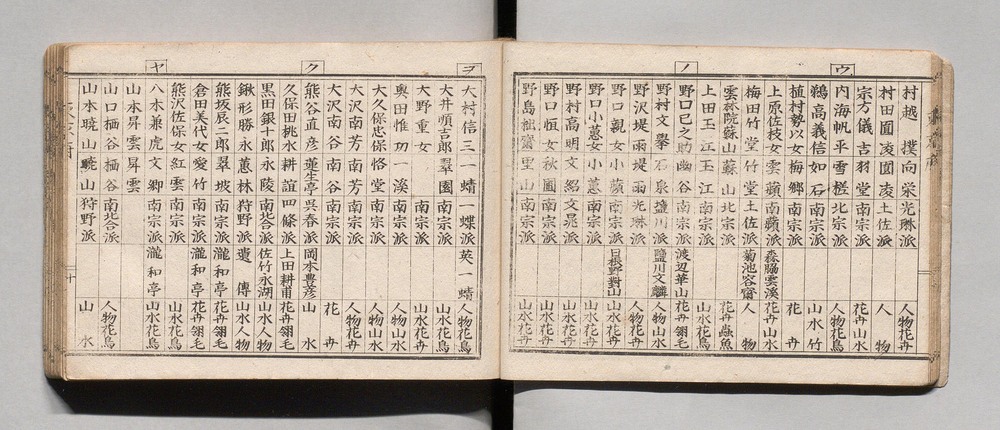 ウ
村越 撲向栄光琳派 人物花卉
村田圓凌圓凌土佐派 人物
宗方儀女古羽堂南宗派 花卉山水
内海帆平雪槎北宗派 人物花鳥
鵜高義信如石南宗派 山水竹
植村勢以女梅郷南宗派 花卉
上原佐枝女雲蘋南蘋派森脇雲溪花卉山水
梅田竹堂竹堂土佐派菊池容齋人物
雲林院蘇山蘇山北宗派 花卉虫魚
上田玉江玉江南宗派 山水花鳥
ノ
野口巳之助幽谷南宗派渡辺華山花卉翎毛
野村文擧石泉塩川派塩川文麟人物山水
野沢堤雨堤雨光琳派 人物花卉
野口親女小蘋南宗派日根野對山山水花卉
野口小蕙女小蕙南宗派 山水花卉
野村高明文紹文晁派 山水花卉
野口恒女秋圃南宗派 山水花卉
野島 山南宗派 山水花卉
ヲ
大村信三一蜻一蝶派英一蜻人物花鳥
大井順吉郎翠園南宗派 山水花卉
大野重女 南宗派 山水花卉
奥田惟 一溪南宗派 人物山水
大久保忠保恪堂南宗派 人物山水
大沢南芳南芳南宗派 人物花卉
大沢南谷南谷南宗派 花卉
ク
熊谷直彦蓮生亭呉春派岡本豊彦山水
久保田桃水耕誼四條派上田耕甫花卉翎毛
黒田銀十郎永陵南北合派佐竹永湖山水人物
鍬形勝永蕙林狩野派蕙傳山水人物
熊坂辰二郎翠坡南宗派瀧和亭花卉翎毛
倉田美代女愛竹南宗派瀧和亭花卉翎毛
熊沢佐保女紅雲南宗派 山水花鳥
ヤ
八木兼虎文郷南宗派瀧和亭山水花鳥
山本昇雲昇雲
山口栖谷栖谷南北合派 人物花鳥
山本暁山暁山狩野派 山水